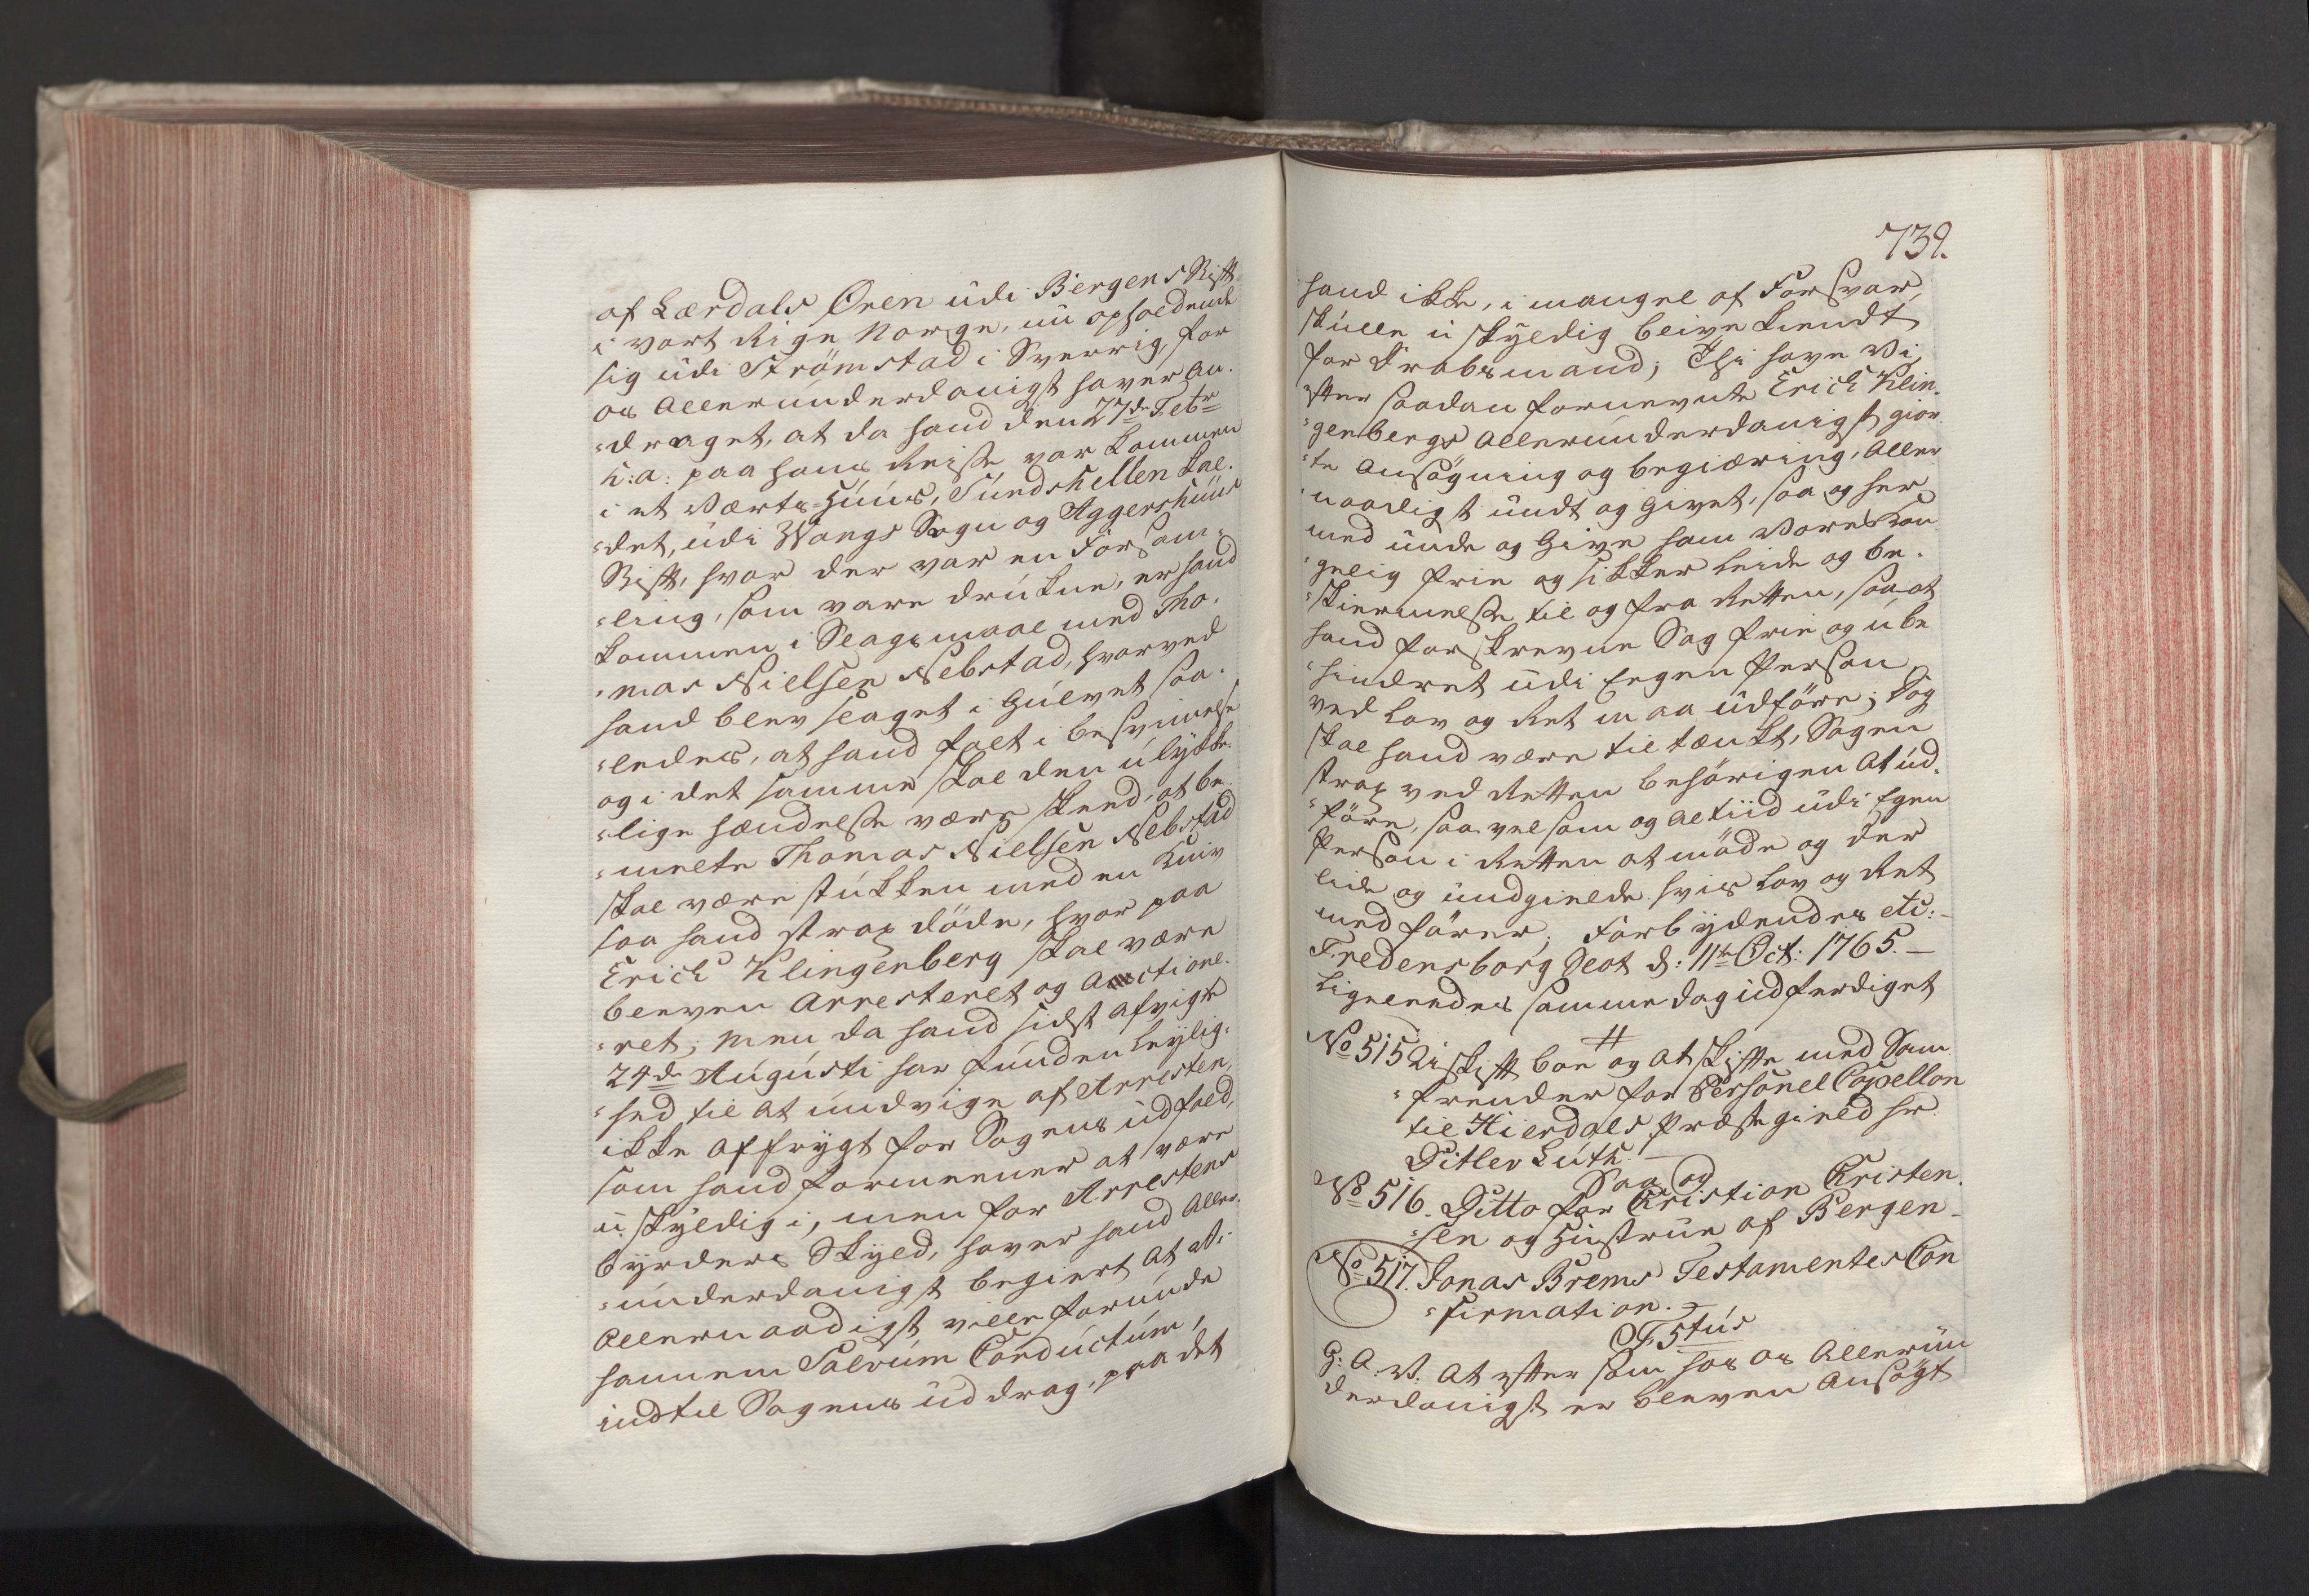 af Lærdals Øren udi Bergens Stift
i vort Rige Norge, nu opholdende
sig udi Strömstad i Sverrig, for
os Allerunderdanigst haver an-
-draget, at da hand den 27de Febr
h: a: paa hans Reise var kommen
i et Værts-Huus, Sundshellen kal-
-det, udi Wangs Sogn og Aggershuus
Stift, hvor der var en Forsam-
-ling, som vare drukne, er hand
kommen i Slagsmaal med Tho-
-mas Nielsen Nebstad, hvorved
hand blev slaget i Gulvet saa-
-ledes, at hand falt i besvimelse
og i det samme skal den ulykke-
-lige hændelse være skeed, at be-
-melte Thomas Nielsen Nebstad
skal være stukken med en Kniv
saa hand strax döde, hvor paa
Erich Klingenberg skal være
bleven Arresteret og Actione-
-ret; men da hand sidst afvigte
24de Augusti har funden leylig-
-hed til at undvige af Arresten,
ikke af frygt for Sagens udfald,
som hand formeener at være
uskyldig i, men for Arrestens
byrders Skyld, haver hand Aller-
-underdanigst begiert at Vi
Allernaadigst ville forunde
hannem Salvum Conductum,
indtil Sagens uddrag, paa det
739.
hand ikke, i mangel af Forsvar,
skulle uskyldig blive kiendt
for Drabsmand; Thi have Vi,
efter saadan fornevnte Erich Klin-
-genbergs Allerunderdanigst gior-
-te Ansögning og begiæring, Aller
-naadigst undt og Givet, saa og her
med unde og Give ham Vores Kon-
-gelig frie og sikker Leide og be-
-skiermelse til og fra Retten, saa at
hand forskrevne Sag frie og ube
-hindret udi Egen Person
ved Lov og Ret maa udföre; Dog
skal hand være tiltænkt, Sagen
strax ved Retten behörigen at ud-
-före, saavelsom og altiid udi Egen
Person i Retten at möde og der
lide og undgielde hvis Lov og Ret
medförer. Forbydendes etc:
Fredensborg Slot d: 11te Oct: 1765. —
Ligeleedes samme dag udferdiget
No 515 Uiskift boe og at skifte med Sam
-frender for Personel Capellan
til Hierdals Præstegield hr.
Ditlev Luth. —
Saa og
No 516. Ditto for Christian Christen-
-sen og Hustrue af Bergen —
No 517. Jonas Brems Testamentes Con
-firmation.
CF5tus
G: A. V. at eftersom hos os Allerun
derdanigst er bleven Ansögt